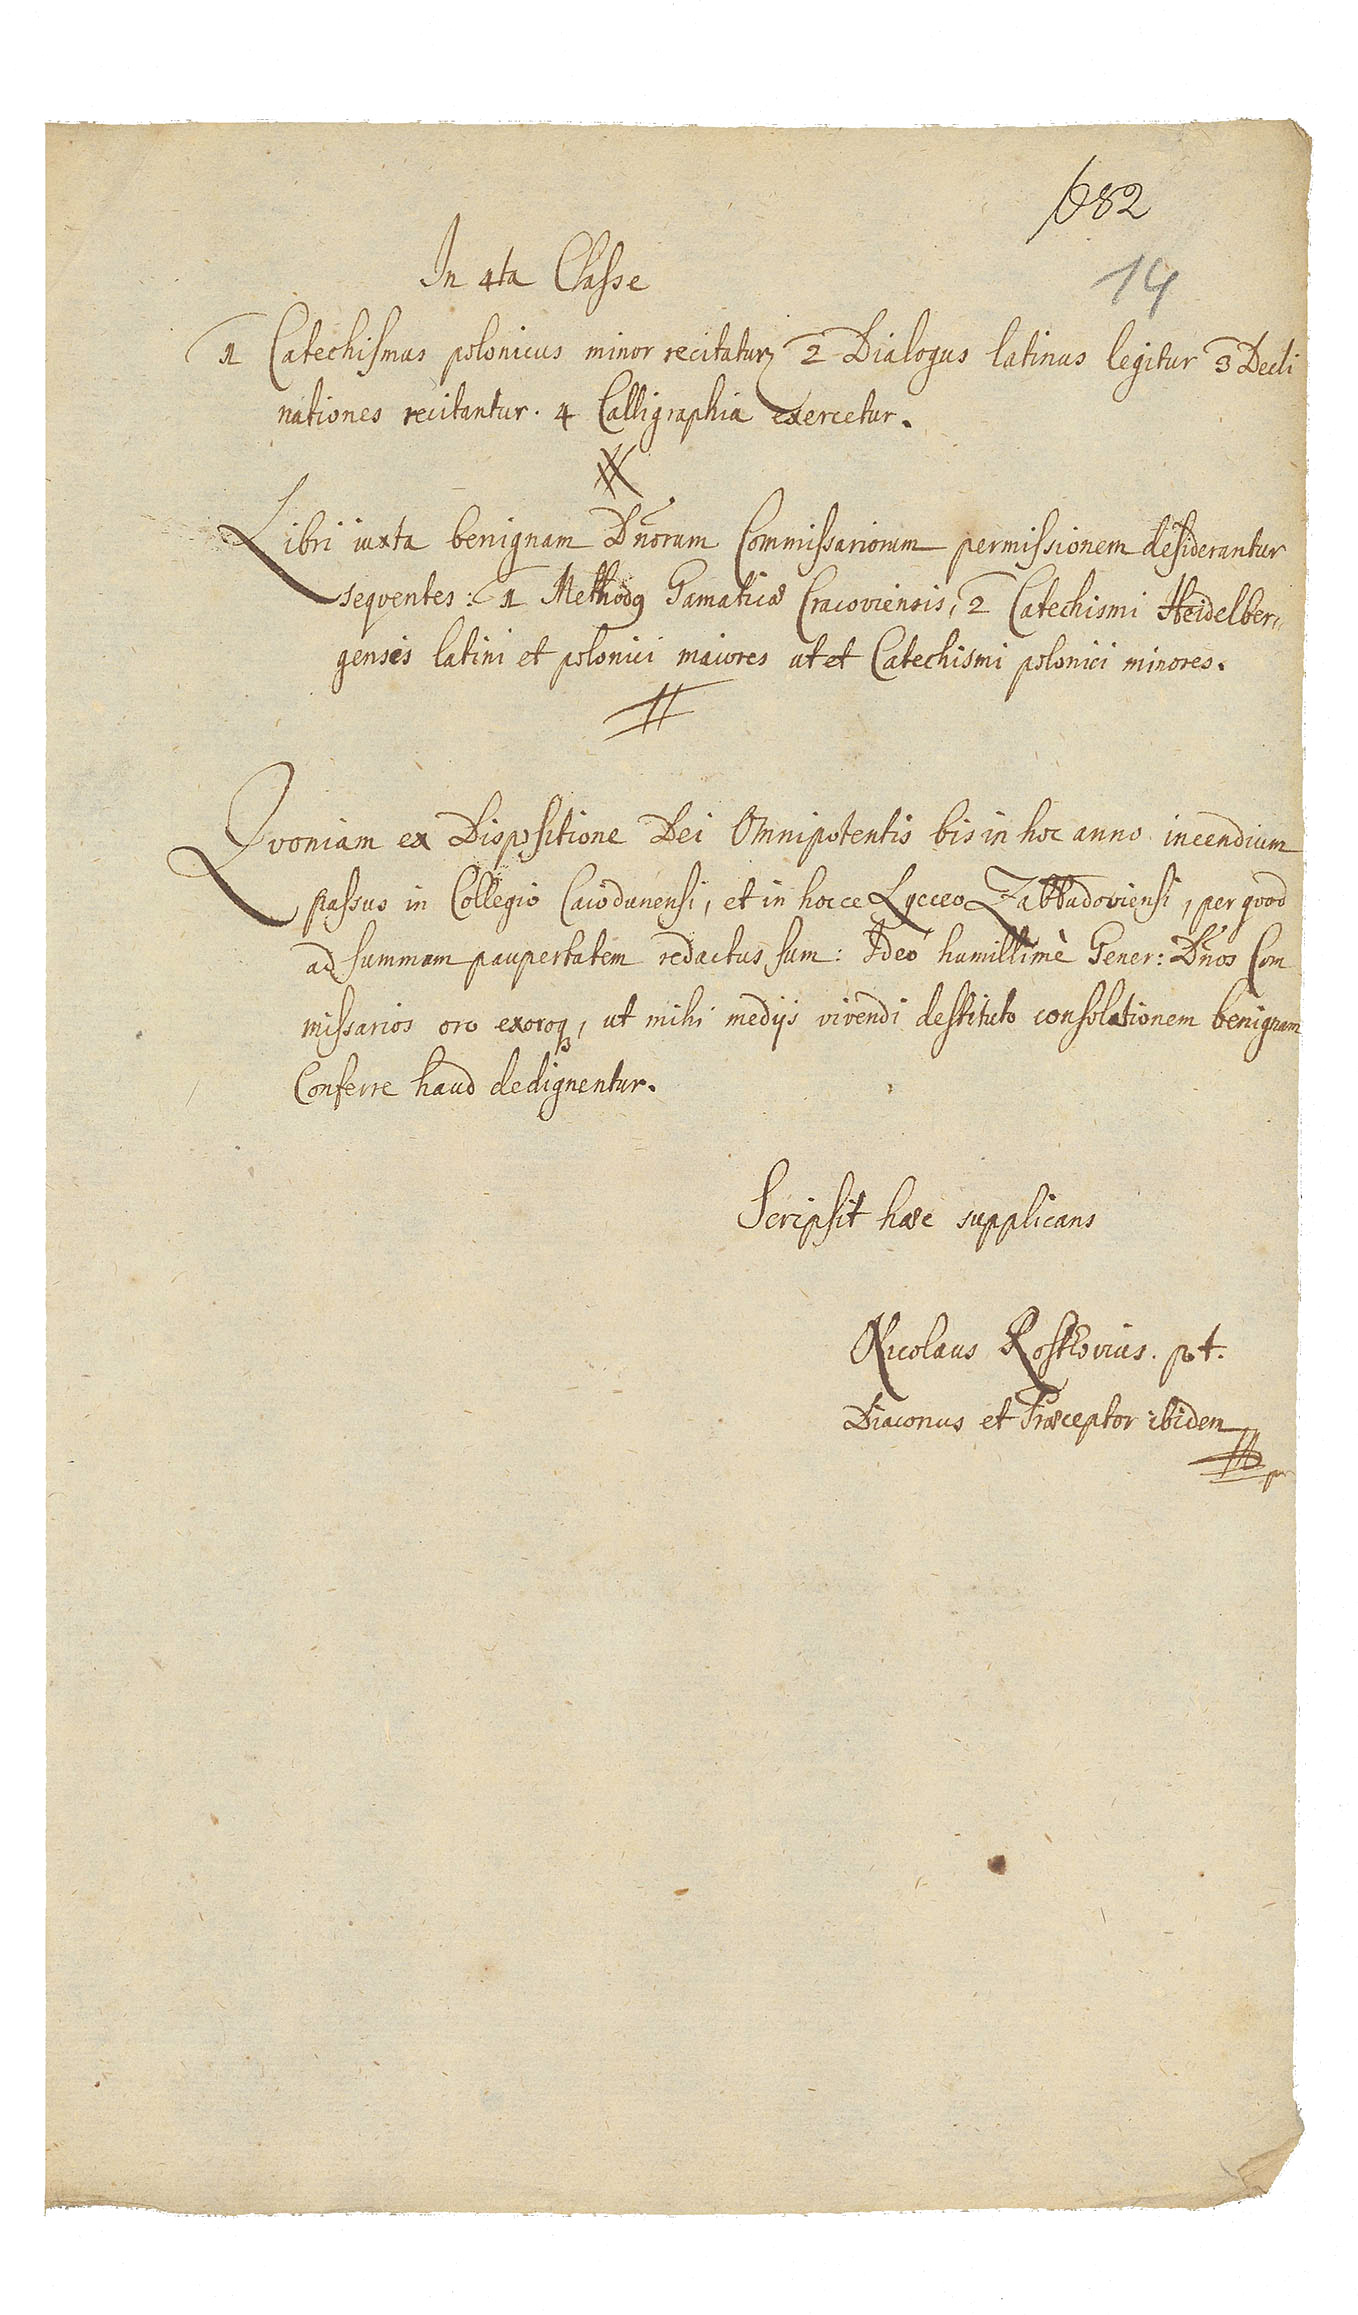 1682
14
In 4ta Classe
1 Catechismus polonicus minor recitatur, 2 Dialogus latinus legitur 3 Decli
nationes recitantur. 4 Calligraphia exercetur.
Libri iuxta benignam Dn̄orum Commissariorum permissionem desiderantur
seqventes: 1 Methodꝯ Gramaticæ Cracoviensis, 2 Catechismi Heidelber„
genses latini et polonici maiores ut et Catechismi polonici minores.
Qvoniam ex Dispositione Dei Omnipotentis bis in hoc anno incendium
passus in Collegio Caiodunensi, et in hocce Lycceo Zabłudoviensi, per qvod
ad summam paupertatem redactus sum: Ideó humillimè Gener: Dn̄os Com
missarios oro exoroqꝫ, ut mihi medijs vivendi destituto consolationem benignam
Conferre haud dedignentur.
Scripsit hæc supplicans
Nicolaus Rostkovius. pt.
Diaconus et Præceptor ibidem